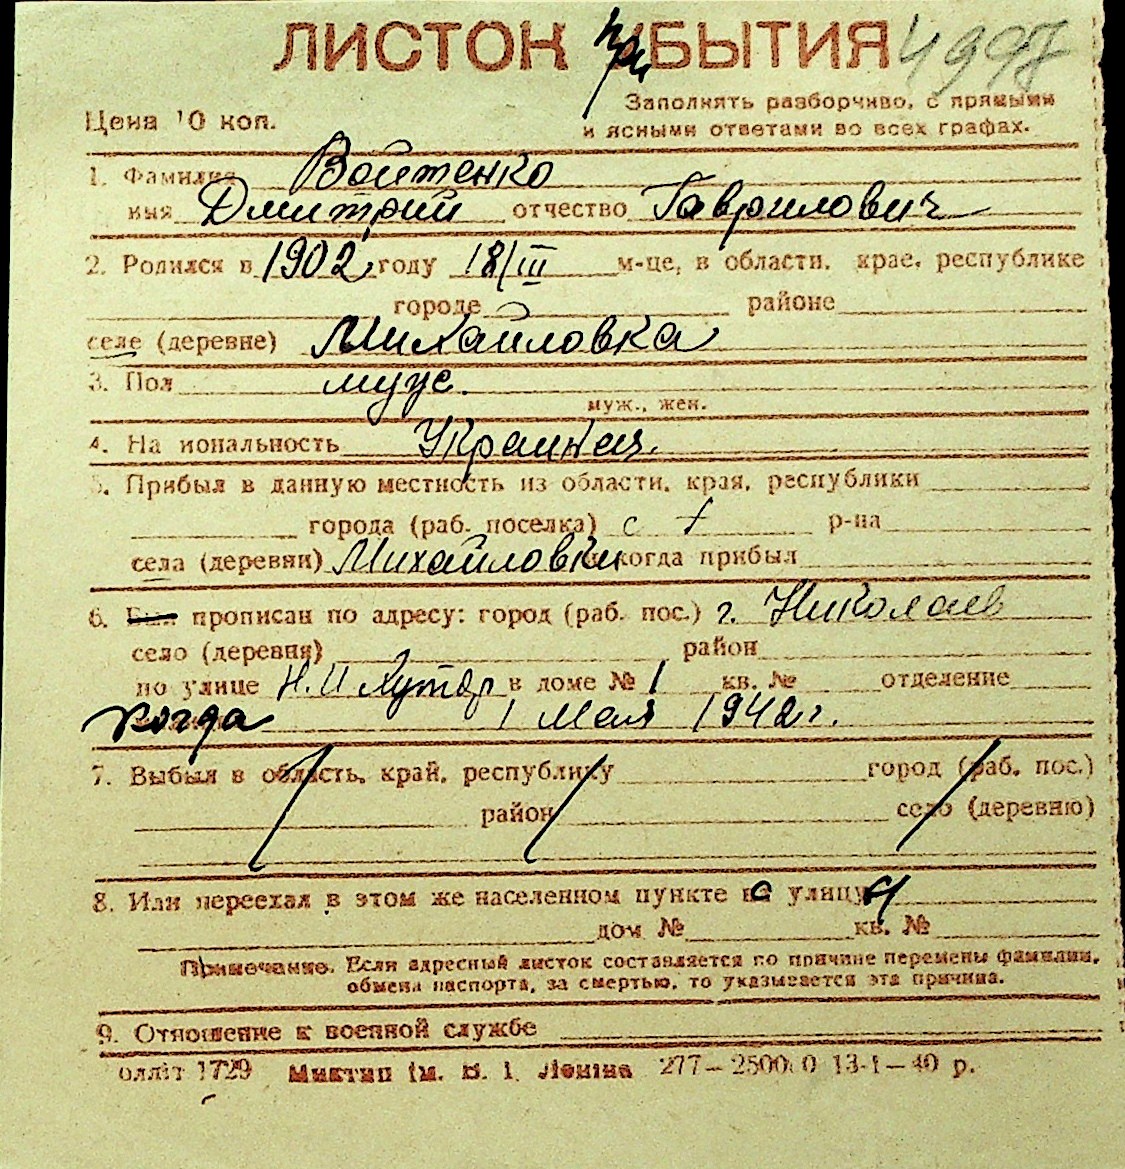 ЛИСТОК при БЫТИЯ 4997
Цена 10 коп.
Заполнять разборчиво, с прямыми
и ясными ответами во всех графах.
1. Фамилия Войтенко
имя Дмитрий отчество Гаврилович
2. Родился в 1902 году 18/III м-це, в области, крае, республике
городе районе
селе (деревне) Михайловка
3. Пол муж.
муж., жен.
4. На иональность Украинец.
5. Прибыл в данную местность из области, края, республики
города (раб. поселка) с р-на
села (деревни) Михайловки когда прибыл
6. Был прописан по адресу: город (раб. пос.) г. Николаев
село (деревня) район
по улице Н. И Хутор в доме № 1 кв. № отделение
когда 1 Мая 1942 г.
7. Выбыл в область, край, республику город (раб. пос.)
район село (деревню)
8. Или переехал в этом же населенном пункте с улицы
дом № кв. №
Примечание. Если адресный листок составляется по причине перемены фамилии,
обмена паспорта, за смертью, то указывается эта причина.
9. Отношение к военной службе
олліт 1729 Миктип ім. В. І. Леніна 277—2500 0 13-1—40 р.